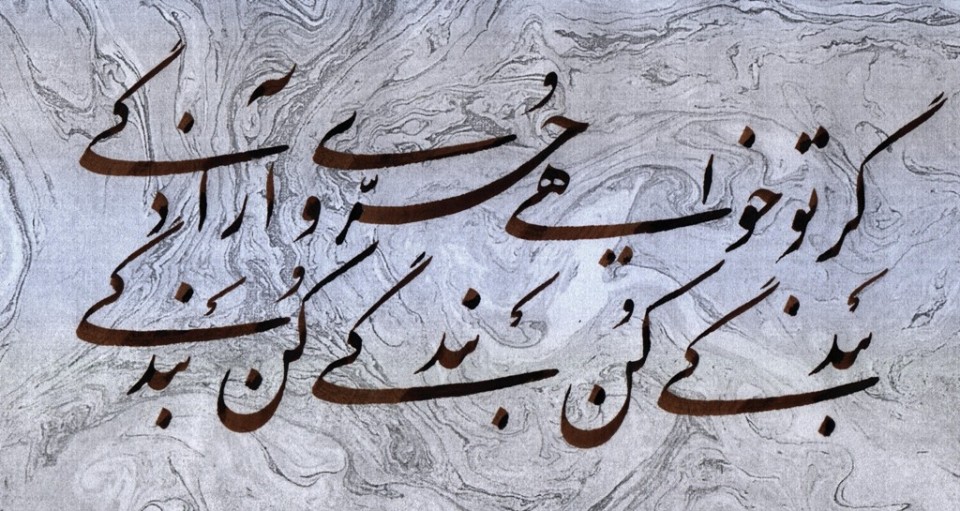 گر تو خواهی حُرّی و آزادگی
بندگی کُن بندگی کُن بندگی